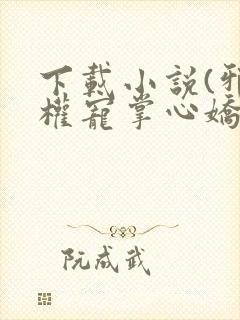 下載小説(邪
權寵掌心嬌
阮成武